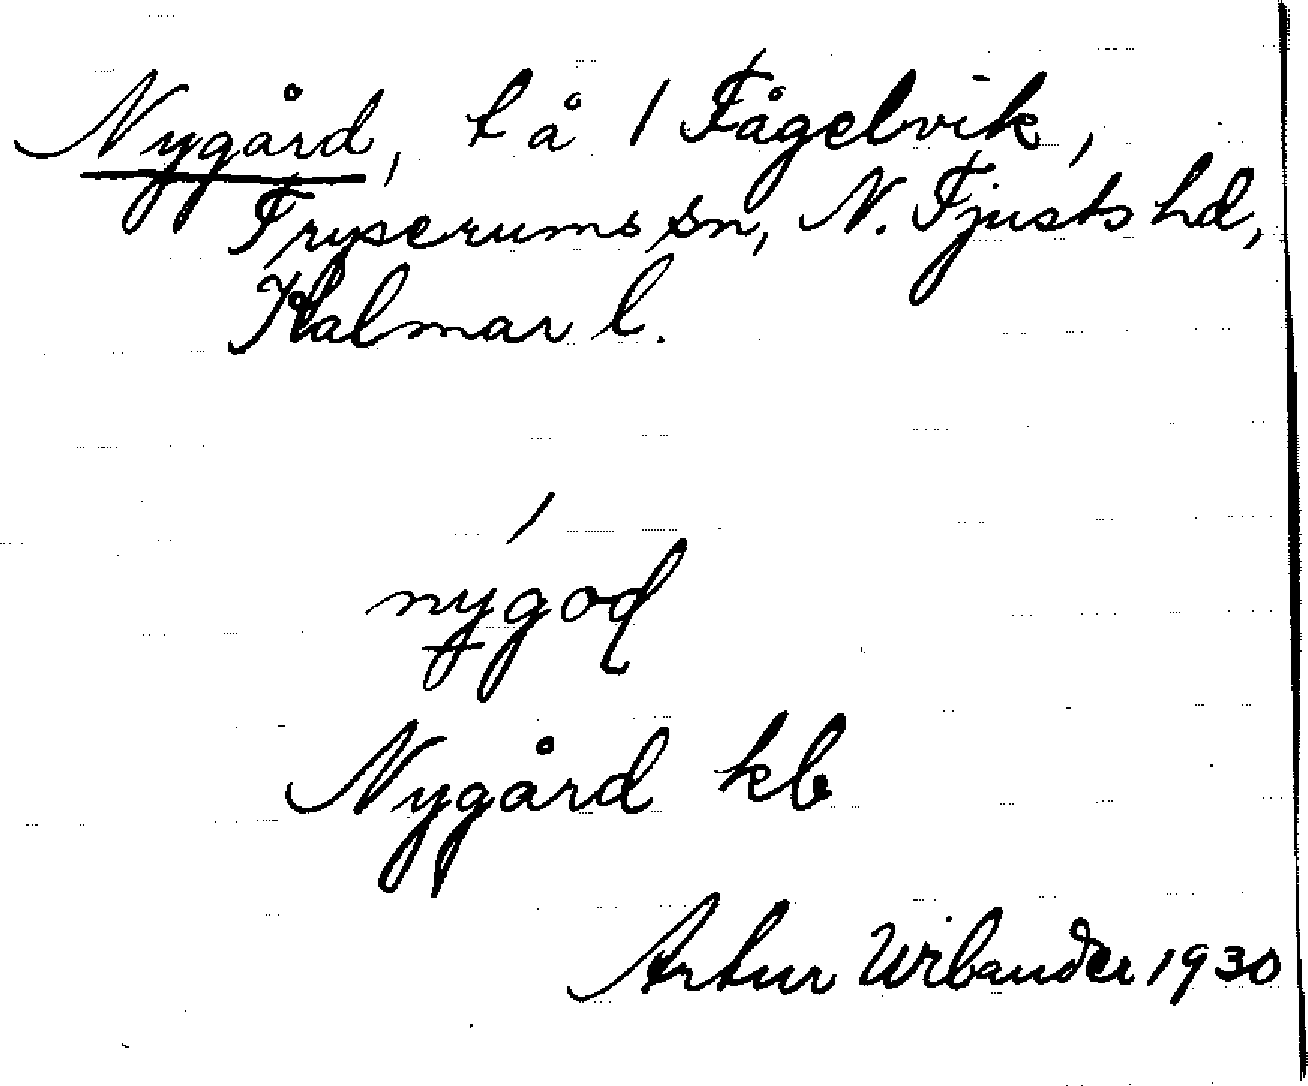 Nygård, t å 1 Fågelvik,
Tryserums sn, N. Tjusts hd,
Kalmar l.
nygoɖ
Nygård kb
Artur Urbander 1930